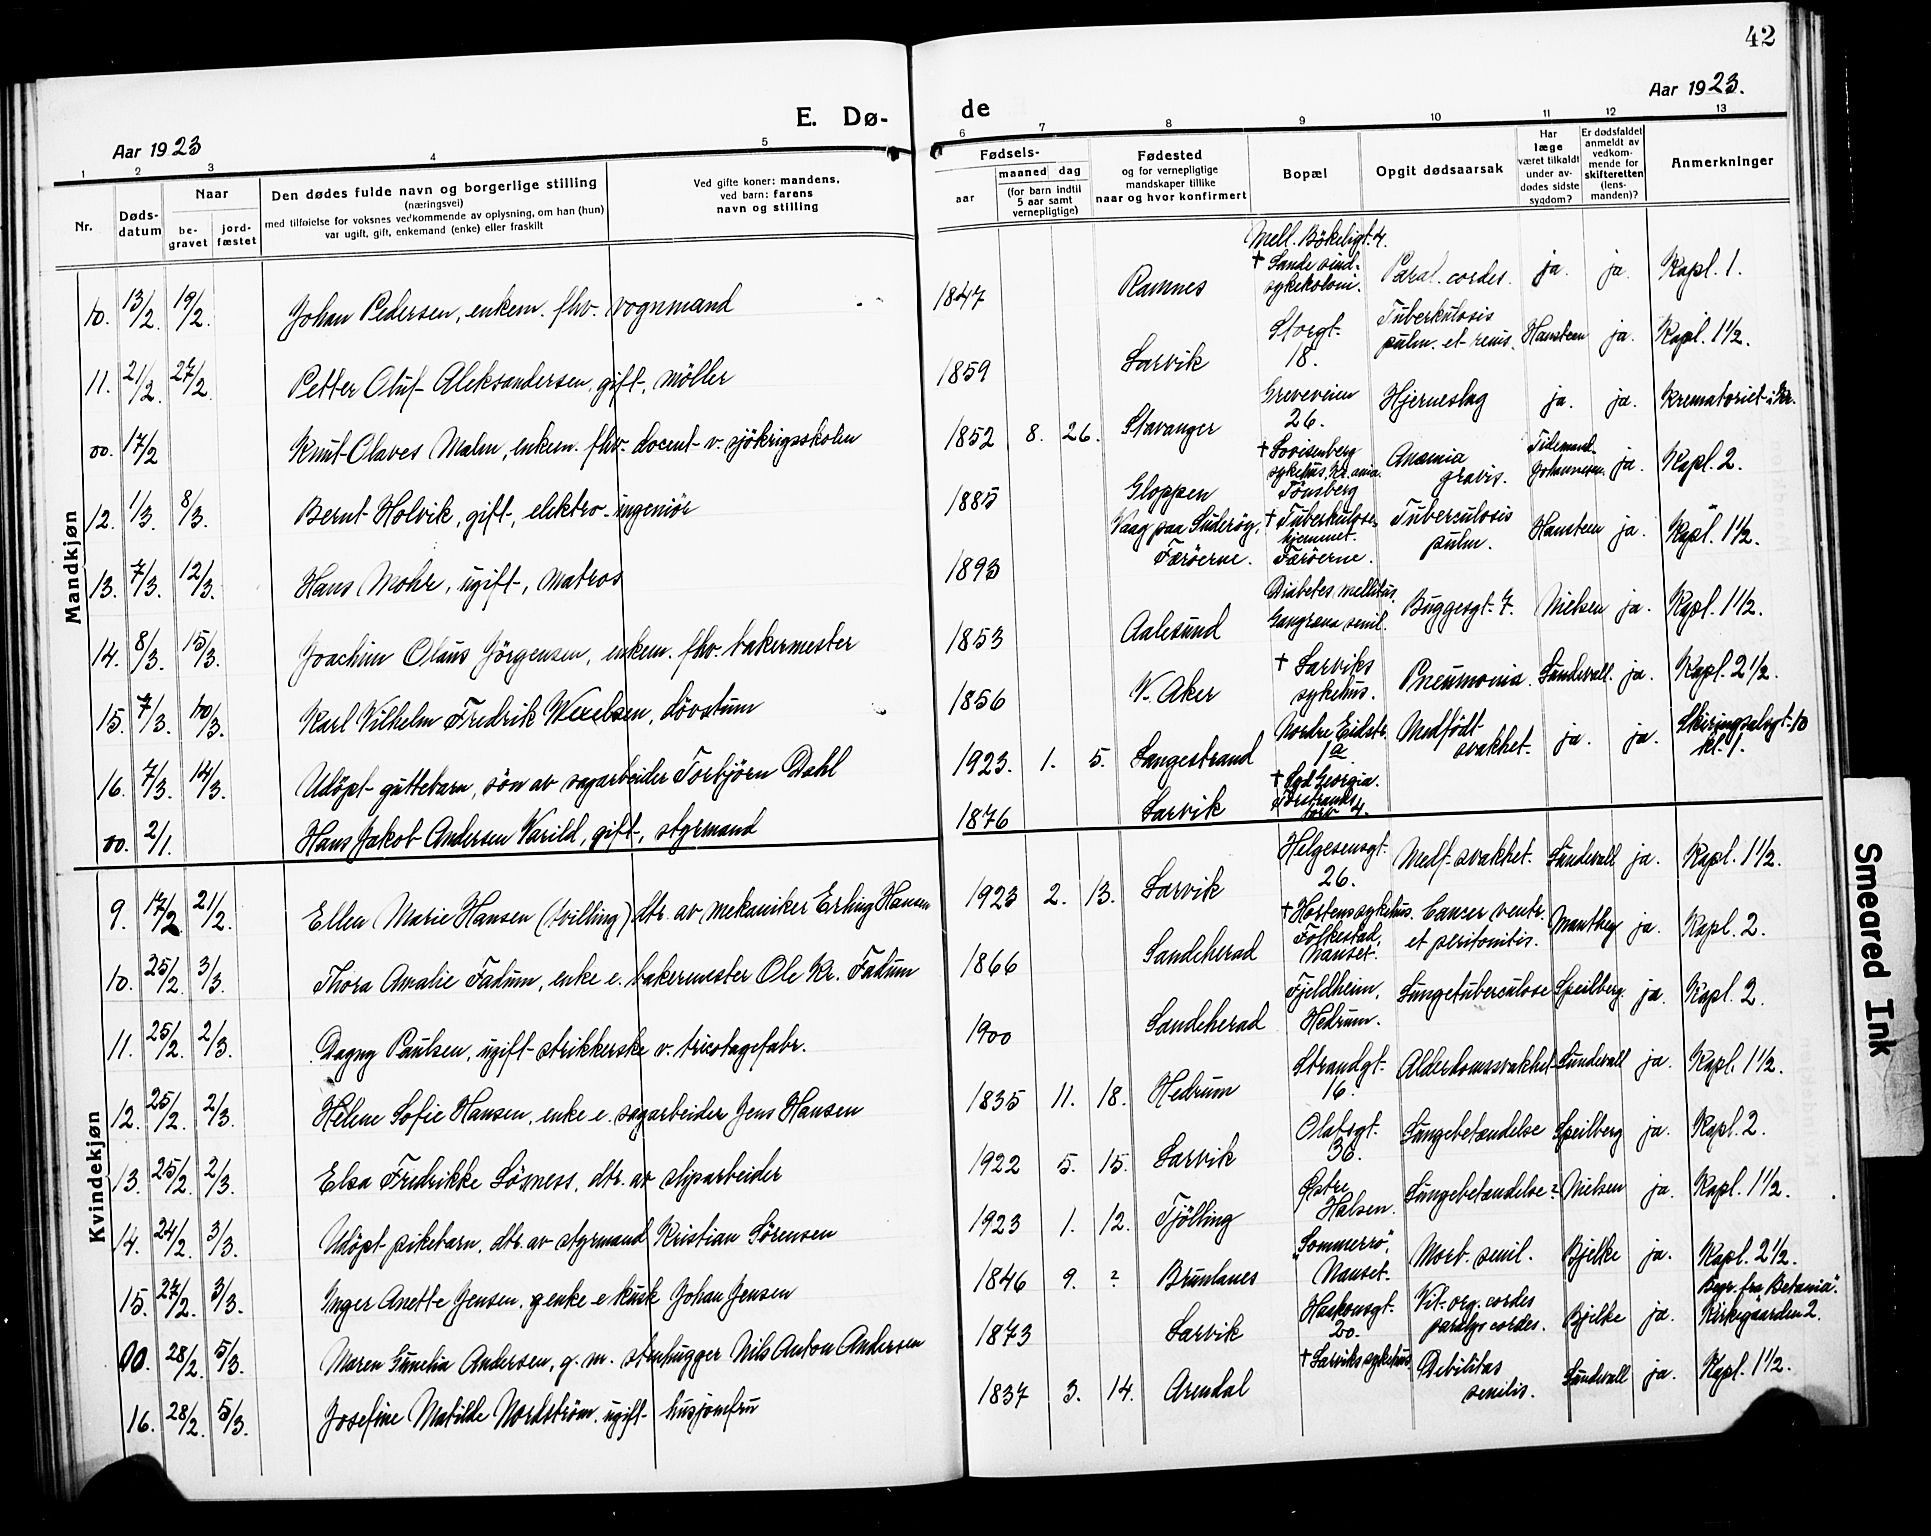 42
Aar 1923
E. Dø-
de
Aar 1923.
1 2 3 4 5 6 7 8 9 10 11 12 13
Nr.
Døds-
datum
Naar
be-
gravet
jord-
fæstet
Den dødes fulde navn og borgerlige stilling
(næringsvei)
med tilføielse for voksnes vedkommende av oplysning, om han (hun)
var ugift, gift, enkemand (enke) eller fraskilt
Ved gifte koner: mandens,
ved barn: farens
navn og stilling
Fødsels-
aar
maaned dag
(for barn indtil
5 aar samt
vernepligtige)
Fødested
og for vernepligtige
mandskaper tillike
naar og hvor konfirmert
Bopæl
Opgit dødsaarsak
Har
læge
været tilkaldt
under av-
dødes sidste
sygdom?
Er dødsfaldet
anmeldt av
vedkom-
mende for
skifteretten
(lens-
manden)?
Anmerkninger
Mandkjøn
10. 13/2 19/2. Johan Pedersen, enkem. fhv. vognmand 1847 Ramnes Mell. Bökeligt. 4. † Sande sind-sykekoloni. Paral. cordis. ja. ja. Kapl. 1.
11. 21/2. 27/2. Petter Oluf Aleksandersen, gift, möller 1859 Larvik Storgt. 18. Tuberkulosis pulm. et renis. Hansteen ja. Kapl. 1 1/2.
00. 17/2 Knut Olaves Malm, enkem. fhv. docent v. sjökrigsskolen 1852 8. 26. Stavanger Greveveien 26. Hjerneslag ja. ja. Krematoriet i Kr.
12. 1/3. 8/3. Bernt Holvik, gift, elektro-ingeniör 1885 Gloppen † Lovisenberg sykehus, Kr.ania. Tönsberg Anæmia gravis. Tidemand-Johannesen ja. Kapl. 2.
13. 7/3. 12/3. Hans Mohr, ugift, matros 1893 Vaag paa Suderöy, Færöerne. † Tuberkulose-hjemmet. Færöerne. Tuberculosis pulm. Hansteen ja. Kapl. 1 1/2.
14. 8/3. 15/3. Joachim Olaus Jörgensen, enkem. fhv. bakermester 1853 Aalesund Diabetes mellitus. Gangræna senil. Buggesgt. 7. Nielsen ja. Kapl. 1 1/2.
15. 7/3. 10/3. Karl Vilhelm Fredrik Wexelsen, dövstum 1856 V. Aker † Larviks sykehus. Pneumonia. Sundevall. ja. Kapl. 2 1/2.
16. 7/3. 14/3. Udöpt guttebarn, sön av sagarbeider Torbjörn Dahl 1923. 1. 5. Langestrand Nordre Eidstr. 1a Medfödt svakhet. ja. ja. Skiringsalsgt. 10 kl. 1.
00. 2/1. Hans Jakob Andersen Varild, gift, styrmand 1876 Larvik † Syd Georgia. torv 4.
Kvindekjøn
9. 17/2 21/2. Ellen Marie Hansen (tvilling) dtr. av mekaniker Erling Hansen 1923 2. 13. Larvik Helgesensgt. 26. Medf. svakhet. Sundevall ja. Kapl. 1 1/2.
10. 25/2 3/3. Thora Amalie Fadum, enke e. bakermester Ole Kr. Fadum 1866 Sandeherad † Hortens sykehus. Folkestad, Nanset. Cancer ventr. et peritonitis. Manthey ja. Kapl. 2.
11. 25/2. 2/3. Dagny Paulsen, ugift strikkerske v. tricotagefabr. 1900 Sandeherad Fjeldheim, Hedrum. Lungetuberculose Speilberg ja. Kapl. 2.
12. 25/2. 2/3. Helene Sofie Hansen, enke e. sagarbeider Jens Hansen 1835 11. 18. Hedrum Strandgt. 16. Alderdomssvakhet Sundevall ja. Kapl. 1 1/2.
13. 25/2. 2/3. Elsa Fredrikke Lösness, dtr. av sliparbeider 1922 5. 15. Larvik Olafsgt. 36. Lungebetændelse Speilberg ja. Kapl. 2.
14. 24/2. 3/3. Udöpt pikebarn, dtr. av styrmand Kristian Sörensen 1923 1. 12. Tjölling Østre Halsen. Lungebetændelse? Nielsen ja. Kapl. 1 1/2.
15. 27/2. 3/3. Inger Anette Jensen, g enke e kusk Johan Jensen 1846 9. ? Brunlanes "Sommerro", Nanset. Morb. senil. Bjelke ja. Kapl. 2 1/2.
00. 28/2. 5/3. Maren Gunelia Andersen, g. m. stenhugger Nils Anton Andersen 1873 Larvik Haakonsgt. 20. Vit. org. cordis paralys cordis. Bjelke ja. Begr. fra "Betania". Kirkegaarden 2.
16. 28/2. 5/3. Josefine Matilde Nordström, ugift husjomfru 1837 3. 14. Arendal † Larviks sykehus. Debilitas senilis. Sundevall ja. Kapl. 1 1/2.
Smeared Ink